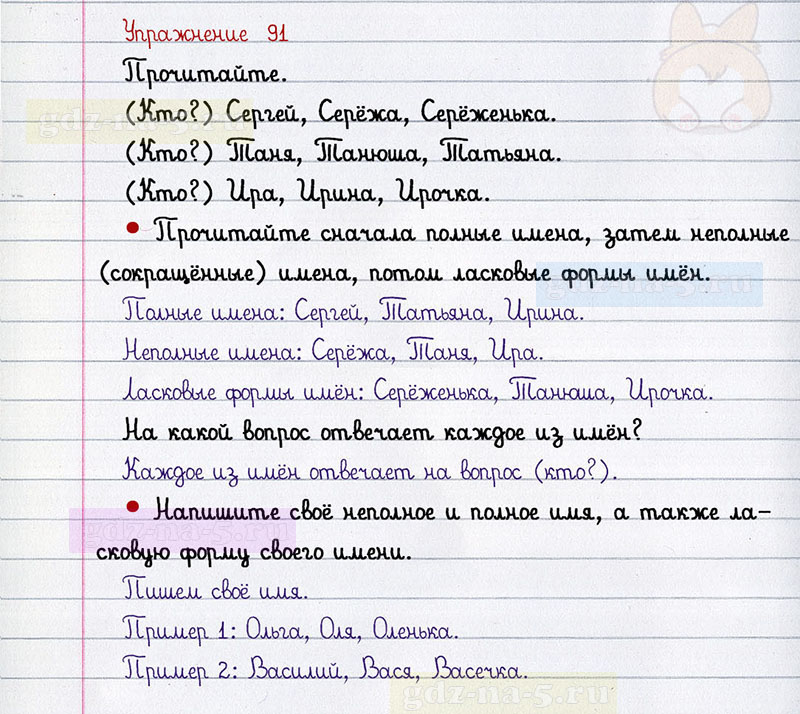 Упражнение 91
Прочитайте.
(Кто?) Сергей, Серёжа, Серёженька.
gdz-na-5.ru
(Кто?) Таня, Танюша, Татьяна.
(Кто?) Ира, Ирина, Ирочка.
• Прочитайте сначала полные имена, затем неполные
(сокращённые) имена, потом ласковые формы имён.
gdz-na-5.ru
Полные имена: Сергей, Татьяна, Ирина.
Неполные имена: Серёжа, Таня, Ира.
Ласковые формы имён: Серёженька, Танюша, Ирочка.
На какой вопрос отвечает каждое из имён?
Каждое из имён отвечает на вопрос (кто?).
• Напишите своё неполное и полное имя, а также ла-
gdz-na-5.ru
сковую форму своего имени.
Пишем своё имя.
Пример 1: Ольга, Оля, Оленька.
Пример 2: Василий, Вася, Васечка.
gdz-na-5.ru